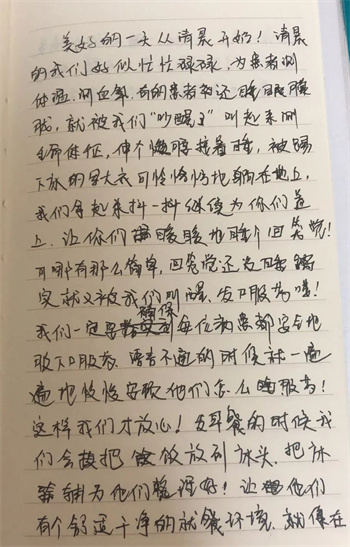 美好的一天从清晨开始！清晨
的我们好似忙忙碌碌，为患者测
体温、测血糖，有的患者还睡眼朦
胧，就被我们“吵醒了”叫起来测
生命体征，伸个懒腰接着睡，被踢
下床的大衣可怜悄悄地躺在地上，
我们拿起来抖一抖继续为你们盖
上，让你们暖暖地睡个回笼觉！
可哪有那么简单，回笼觉还没睡踏
实就又被我们叫醒，发口服药喽！
我们一定要确保每位病患都安全地
服下口服药，语言不通的时候就一遍
遍地比划告诉他们怎么服药！
这样我们才放心！发早餐的时候我
们会把饭放到床头，把床
铺为他们整理好！让他们
有个舒适干净的就餐环境，就像在